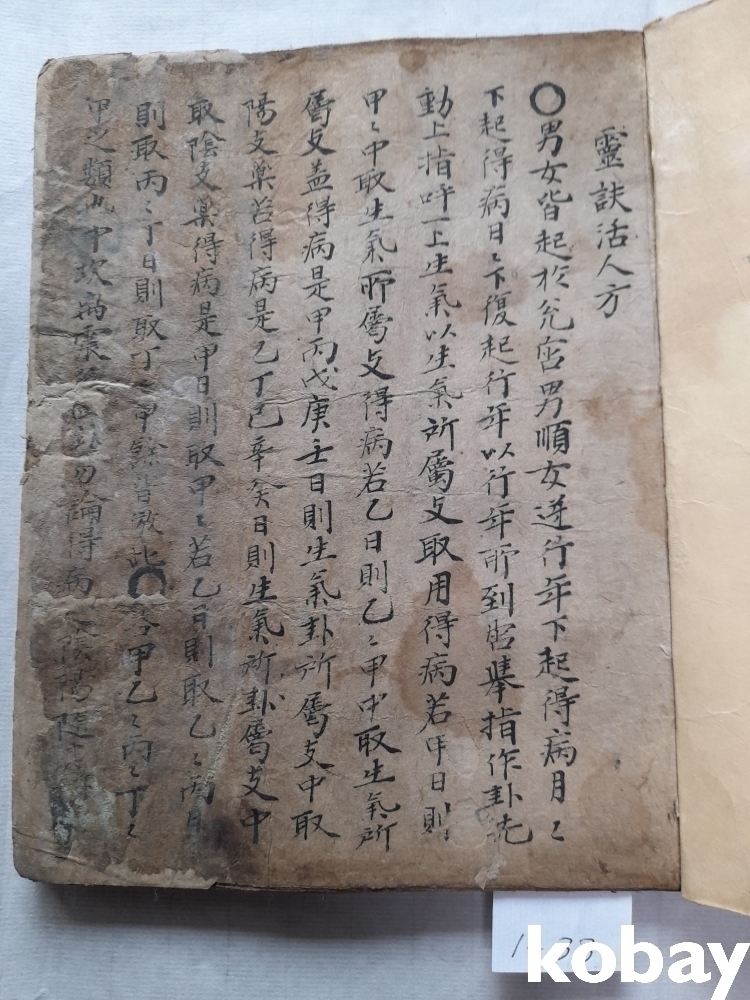 靈訣活人方
○男女皆起於兊宮男順女逆行年下起得病月〻
下起得病日〻下復起行年以行年所到宮擧指作卦先
動上指呼一上生氣以生氣所屬支取用得病若甲日則
甲〻中取生氣所屬支得病若乙日則乙〻甲中取生氣所
屬支盖得病是甲丙戊庚壬日則生氣卦所屬支中取
陽支藥若得病是乙丁己辛癸日則生氣所卦屬支中
取陰支藥得病是甲日則取甲〻若乙日則取乙〻丙日
則取丙〻丁日則取丁〻甲餘皆放此○ 甲乙〻丙〻丁〻
甲之類也中坎 震 勿論得病 陰陽
1-33
kobay